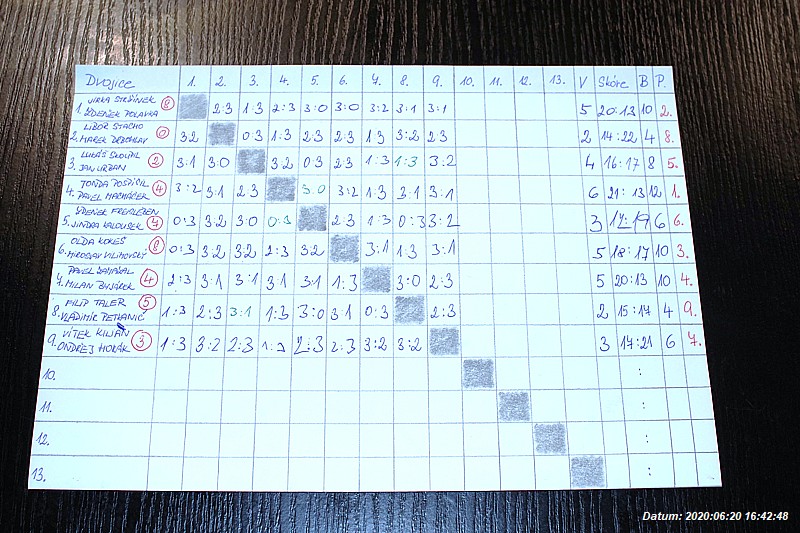 Dvojice 1. 2. 3. 4. 5. 6. 7. 8. 9. 10. 11. 12. 13. V Skóre B P.
JIRKA 8
1. ZDENĚK POLAVKA 2:3 1:3 2:3 3:0 3:0 3:2 3:1 3:1 5 20:13 10 2.
LIBOR STACHO 0
2. MAREK 3:2 0:3 1:3 2:3 2:3 1:3 3:2 2:3 2 14:22 4 8.
LUKÁŠ SKOUPIL 2
3. JAN URBAN 3:1 3:0 3:2 0:3 2:3 1:3 1:3 3:2 4 16:17 8 5.
TONDA POSPÍŠIL 4
4. PAVEL MACHÁČEK 3:2 3:1 2:3 3:0 3:2 1:3 3:1 3:1 6 21:13 12 1.
ZDENĚK 7
5. JINDRA KALOUSEK 0:3 3:2 3:0 0:3 2:3 1:3 0:3 3:2 3 6 6.
OLDA KOKEŠ 8
6. MIROSLAV VLIMOVSKÝ 0:3 3:2 3:2 2:3 3:2 3:1 1:3 3:1 5 18:17 10 3.
PAVEL 4
7. MILAN 2:3 3:1 3:1 3:1 3:1 1:3 3:0 2:3 5 20:13 10 4.
FILIP TALER 5
8. VLADIMÍR PETKANIČ 1:3 2:3 3:1 1:3 3:0 3:1 0:3 2:3 2 15:17 4 9.
VÍTEK KILIÁN 3
9. ONDŘEJ HORÁK 1:3 3:2 2:3 1:3 2:3 2:3 3:2 3:2 3 17:21 6 7.
10. :
11. :
12. :
13. :
Datum: 2020:06:20 16:42:48